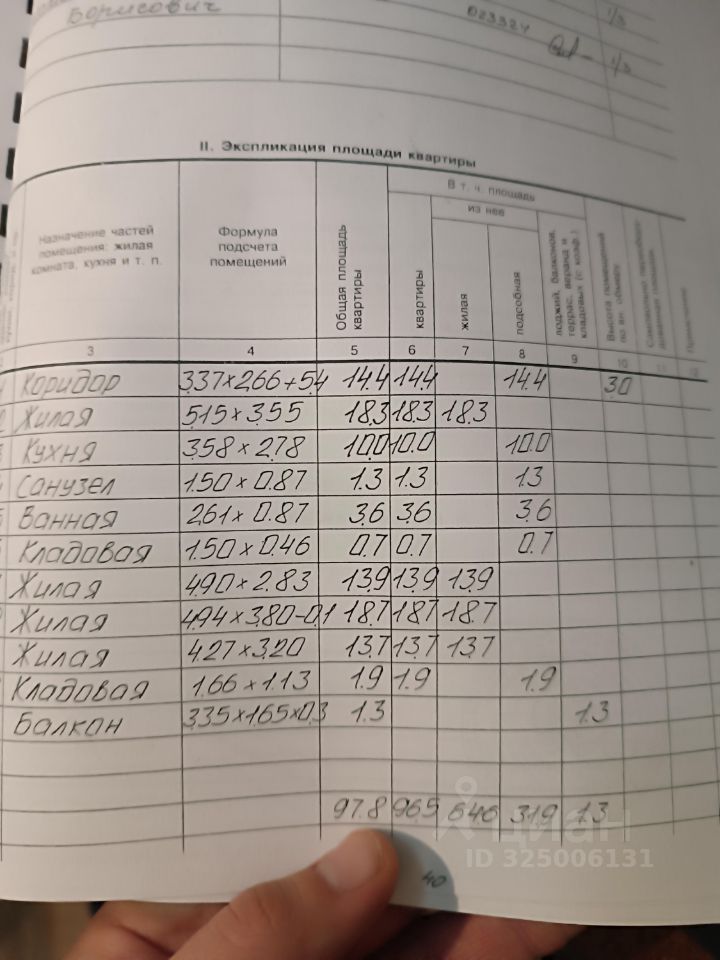 Борисович
023324
1/3
1/3
II. Экспликация площади квартиры
Назначение частей помещения: жилая комната, кухня и т. п.
Формула подсчета помещений
Общая площадь квартиры
В т. ч. площадь
квартиры
из нее
жилая
подсобная
лоджий, балконов, террас, веранд и кладовых (с коэф.)
Высота помещений по вн. обмеру
Примечание
3 4 5 6 7 8 9 10 11 12
Коридор 3.37×2.66+5.4 14.4 14.4 14.4 3.0
Жилая 5.15×3.55 18.3 18.3 18.3
Кухня 3.58×2.78 10.0 10.0 10.0
Санузел 1.50×0.87 1.3 1.3 1.3
Ванная 2.61×0.87 3.6 3.6 3.6
Кладовая 1.50×0.46 0.7 0.7 0.7
Жилая 4.90×2.83 13.9 13.9 13.9
Жилая 4.94×3.80-0.1 18.7 18.7 18.7
Жилая 4.27×3.20 13.7 13.7 13.7
Кладовая 1.66×1.13 1.9 1.9 1.9
Балкон 3.35×1.65×0.3 1.3 1.3
97.8 96.5 64.6 31.9 1.3
циан
ID 325006131
40